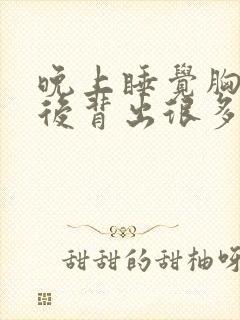 晚上睡覺胸
後背出很多
甜甜的甜柚呀